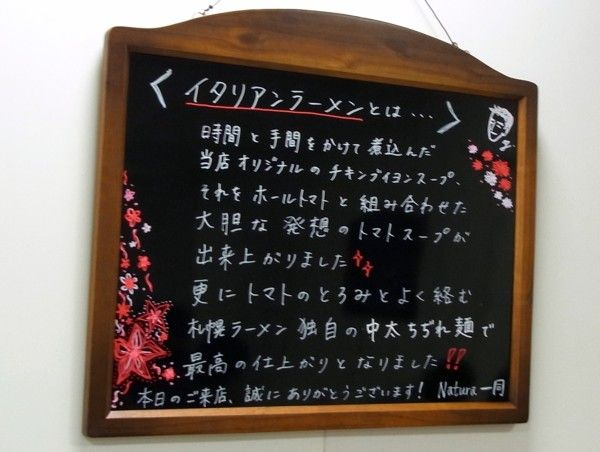 〈イタリアンラーメンとは…〉
時間と手間をかけて煮込んだ
当店オリジナルのチキンブイヨンスープ、
それをホールトマトと組み合わせた
大胆な発想のトマトスープが
出来上がりました
更にトマトのとろみとよく絡む
札幌ラーメン独自の中太ちぢれ麺で
最高の仕上がりとなりました!!
本日のご来店、誠にありがとうございます! Natura一同